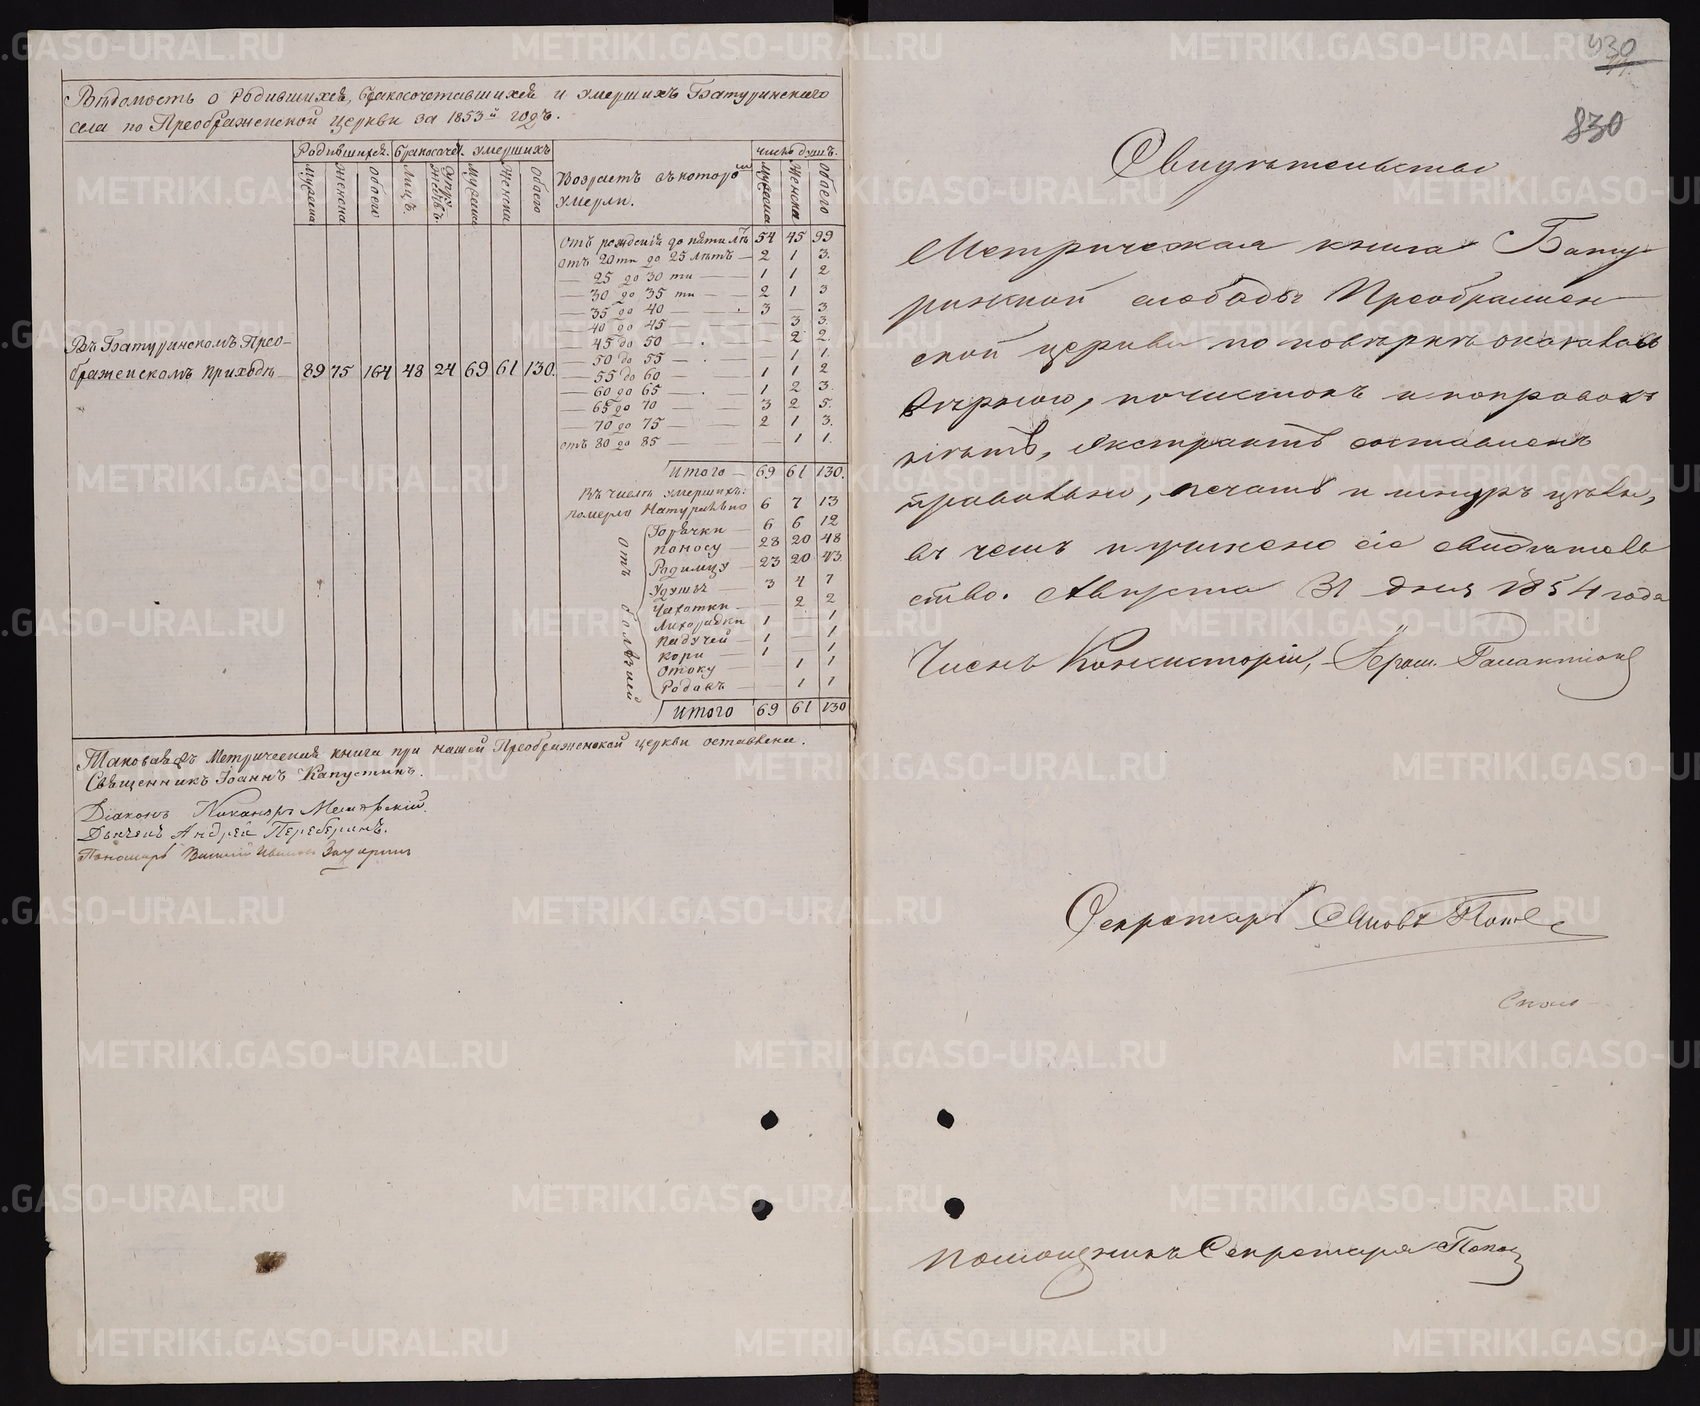 Вѣдомость о Родившихся, бракосочетавшихся и умершихъ Батуринскаго
села по Преображенской церкви за 1853й годъ.
Родившихся. Бракосочет. умершихъ число душъ.
Мужеска Женска Обоего Лицъ. Супружествъ. Мужеска Женска Обоего Возрастъ въ которомъ умерли. Мужеска Женска Обоего
отъ рожденія до пяти лѣтъ 54 45 99
отъ 20ти до 25 лѣтъ — 2 1 3.
— 25 до 30 ти — 1 1 2
— 30 до 35 ти — 2 1 3
— 35 до 40 — 3 — 3
— 40 до 45 — — 3 3.
— 45 до 50 — — 2 2.
— 50 до 55 — — 1 1.
— 55 до 60 — 1 1 2
— 60 до 65 — 1 2 3.
— 65 до 70 — 3 2 5.
— 70 до 75 — 2 1 3.
отъ 80 до 85 — — 1 1.
Въ Батуринскомъ Прео-
браженскомъ приходѣ 89 75 164 48 24 69 61 130.
Итого — 69 61 130.
Въ числѣ умершихъ:
померло Натурально 6 7 13
отъ болѣзней
Горячки — 6 6 12
поносу — 28 20 48
Родимцу — 23 20 43.
Удушья — 3 4 7
Чахотки — — 2 2
Лихорадки 1 — 1
Падучей — 1 — 1
кори — 1 — 1
Отоку — — 1 1
Родахъ — — 1 1
Итого 69 61 130
Таковая Метрическая книга при нашей Преображенской церкви оставлена.
Священникъ Іоаннъ Капустинъ.
Діаконъ Никаноръ
Дьячекъ Андрей
Пономарь
830
830
Свидѣтельство
Метрическая книга Бату-
ринской слободы Преображен-
ской церкви по повѣркѣ оказалась
вѣрною, почистокъ и поправокъ
нѣтъ, экстрактъ составленъ
правильно, печать и шнуръ цѣлы,
въ чемъ и учинено сіе свидѣтель
ство. Августа 31 дня 1854 года
Членъ Консисторіи,
Секретарь
Помощникъ Секретаря Попов
METRIKI.GASO-URAL.RU